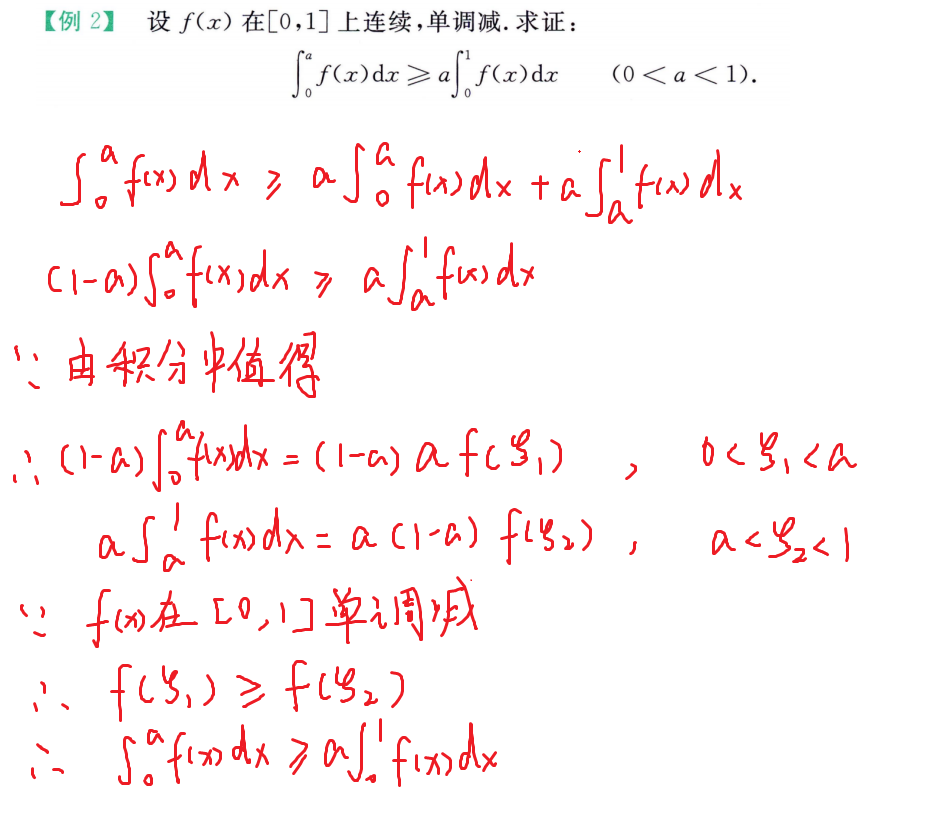 【例 2】 设 f(x) 在[0,1]上连续,单调减.求证:
∫₀ᵃ f(x)dx ≥ a∫₀¹ f(x)dx (0 < a < 1).
∫₀ᵃ f(x)dx ≥ a∫₀ᵃ f(x)dx + a∫ₐ¹ f(x)dx
(1-a)∫₀ᵃ f(x)dx ≥ a∫ₐ¹ f(x)dx
∵ 由积分中值得
∴ (1-a)∫₀ᵃ f(x)dx = (1-a) a f(ξ₁) , 0<ξ₁<a
a∫ₐ¹ f(x)dx = a(1-a) f(ξ₂) , a<ξ₂<1
∵ f(x)在[0,1]单调减
∴ f(ξ₁) ≥ f(ξ₂)
∴ ∫₀ᵃ f(x)dx ≥ a∫₀¹ f(x)dx